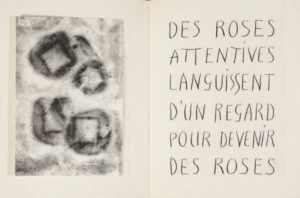 DES ROSES
ATTENTIVES
LANGUISSENT
D'UN REGARD
POUR DEVENIR
DES ROSES